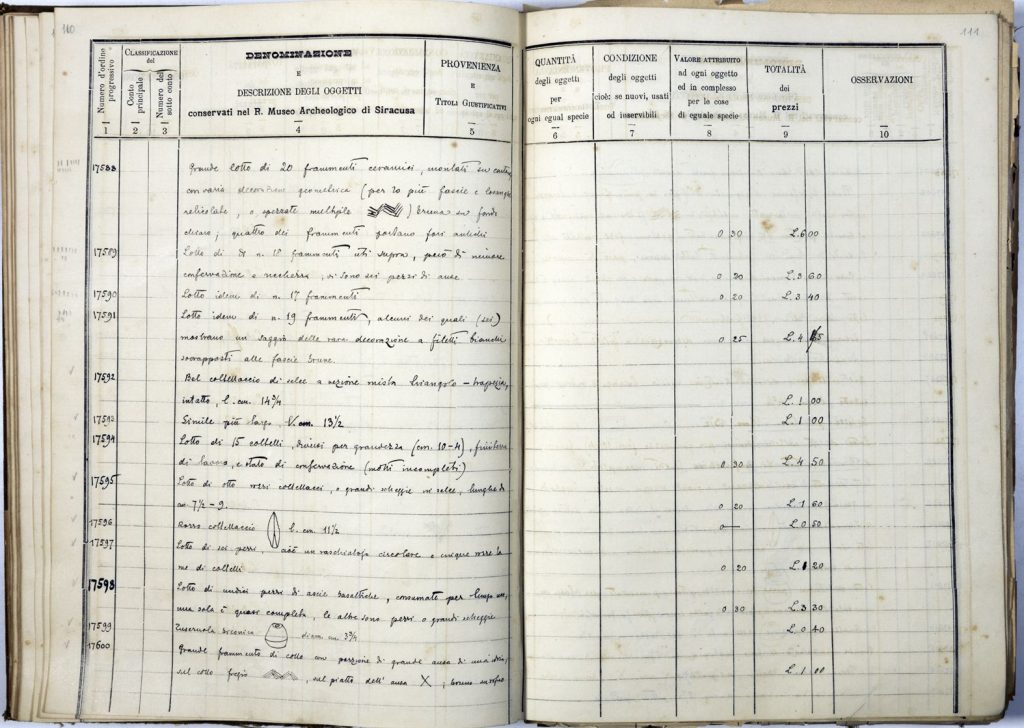 110
Numero d'ordine progressivo
Classificazione del
Conto principale
Numero del sotto conto
DENOMINAZIONE
E
DESCRIZIONE DEGLI OGGETTI
conservati nel R. Museo Archeologico di Siracusa
PROVENIENZA
E
Titoli Giustificativi
1 2 3 4 5
17588 Grande lotto di 20 frammenti ceramici, montati su
con varia decorazione geometrica (per lo più fascie e losanghe
reticolate, o spezzate multiple ) bruna su fondo
chiaro; quattro dei frammenti portano fori antichi
17589 Lotto di n. 18 frammenti uti supra, però di minore
conservazione e ; vi sono sei pezzi di anse
17590 Lotto idem di n. 17 frammenti
17591 Lotto idem di n. 19 frammenti, alcuni dei quali (sei)
mostrano un saggio della rara decorazione a filetti bianchi
sovrapposti alle fascie brune.
17592 Bel coltellaccio di selce a sezione mista triangolo-
intatto, l. cm. 14 3/4
17593 Simile più largo, l. cm. 13 1/2
17594 Lotto di 15 coltelli, diversi per grandezza (cm. 10-4), finitezza
di lavoro, e stato di conservazione (molti incompleti)
17595 Lotto di otto rozzi coltellacci, o grandi scheggie di selce, lunghe da
cm 7 1/2 - 9.
17596 Rozzo coltellaccio l. cm. 11 1/2
17597 Lotto di sei pezzi, cioè un raschiatoio circolare e cinque rozze la
me di coltelli
17598 Lotto di undici pezzi di ascie basaltiche, consumate per lungo uso,
una sola è quasi completa, le altre sono pezzi o grandi scheggie
17599 Fuseruola biconica diam. cm 3 3/4
17600 Grande frammento di collo con porzione di grande ansa di
sul collo fregio , sul piatto dell'ansa X; bruno su
111
QUANTITÀ
degli oggetti
per
ogni egual specie
CONDIZIONE
degli oggetti
cioè: se nuovi, usati
od inservibili
Valore attribuito
ad ogni oggetto
ed in complesso
per le cose
di eguale specie
TOTALITÀ
dei
prezzi
OSSERVAZIONI
6 7 8 9 10
0 30 L. 6 00
0 20 L. 3 60
0 20 L. 3 40
0 25 L. 4
L. 1 00
L. 1 00
0 30 L. 4 50
0 20 L. 1 60
0 — L. 0 50
0 20 L. 1 20
0 30 L. 3 30
L. 0 40
L. 1 00